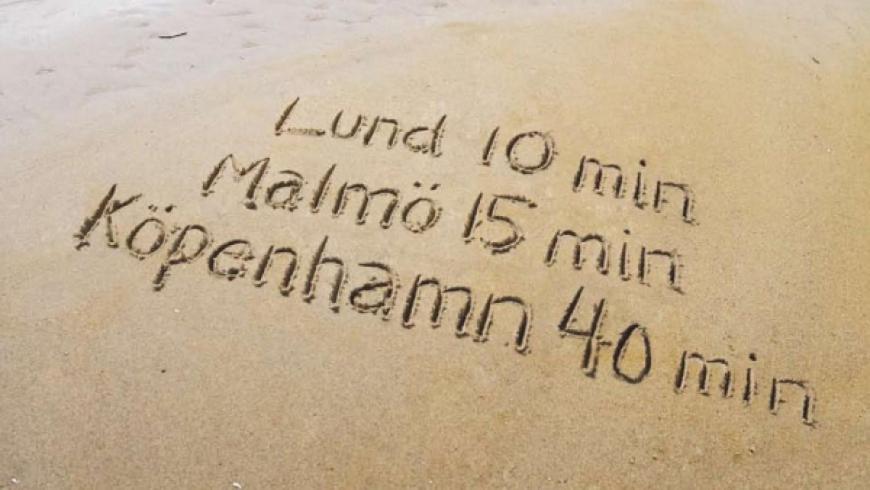 Lund 10 min
Malmö 15 min
Köpenhamn 40 min